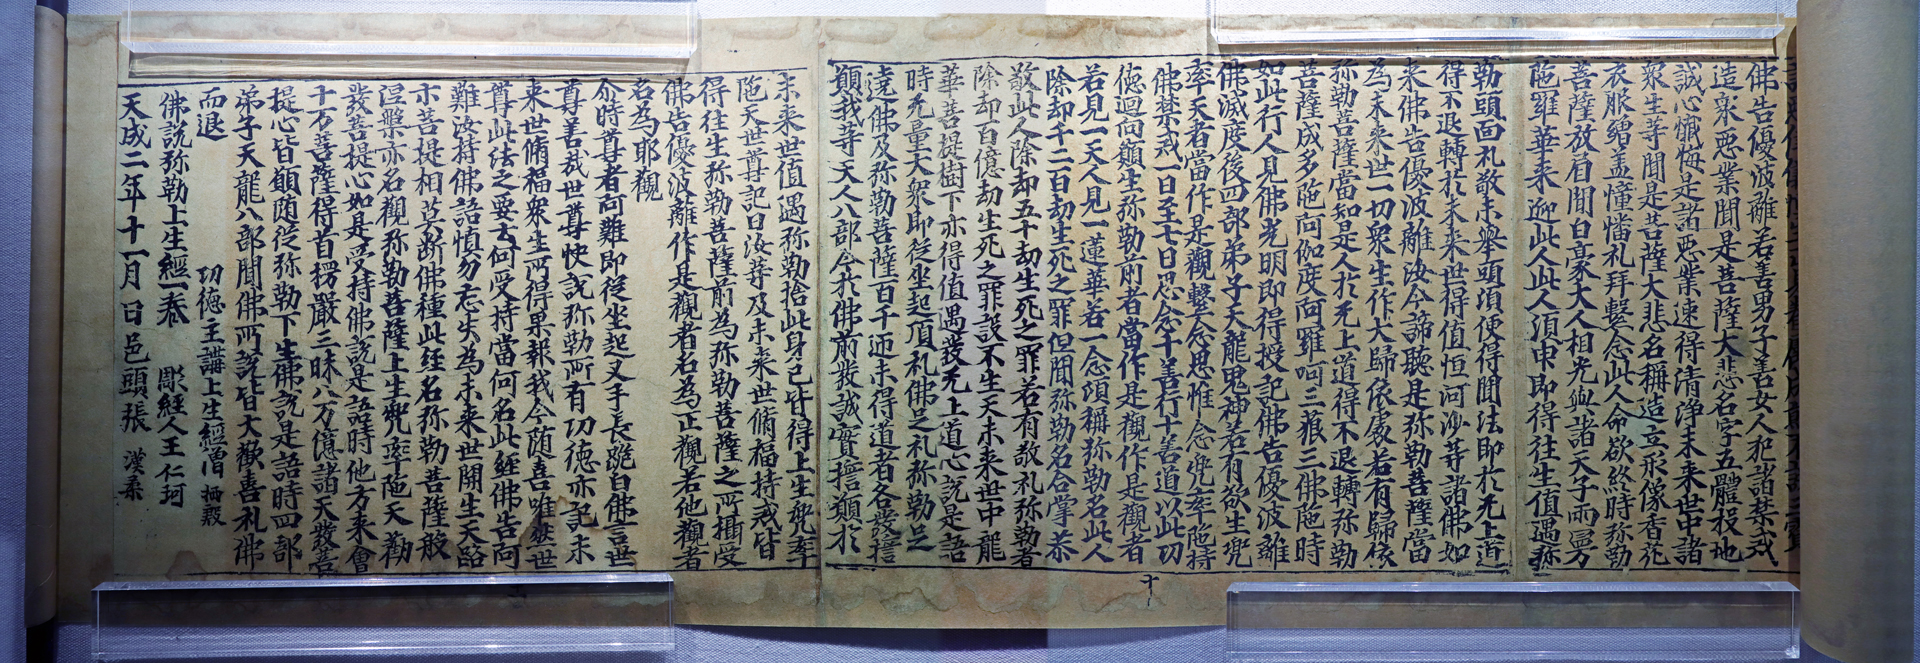 佛告優波離若善男子善女人犯諸禁戒
造衆惡業聞是菩薩大悲名字五體投地
誠心懺悔是諸惡業速得清淨未來世中諸
衆生等聞是菩薩大悲名稱造立形像香花
衣服繒盖幢幡礼拜繫念此人命欲終時弥勒
菩薩放眉間白豪大人相光與諸天子雨曼
陁羅華来迎此人此人須臾即得往生值遇弥
勒頭面礼敬未舉頭頃便得聞法即於无上道
得不退轉於未来世得值恒河沙等諸佛如
来佛告優波離汝今諦聽是弥勒菩薩當
為未来世一切衆生作大歸依處若有歸依
弥勒菩薩當知是人於无上道得不退轉弥勒
菩薩成多陁阿伽度阿羅呵三藐三佛陁時
如此行人見佛光明即得授記佛告優波離
佛滅度後四部弟子天龍鬼神若有欲生兜
率天者當作是觀繫念思惟念兜率陁持
佛禁戒一日至七日思念十善行十善道以此功
德迴向願生弥勒前者當作是觀作是觀者
若見一天人見一蓮華若一念頃稱弥勒名此人
除却千二百劫生死之罪但聞弥勒名合掌恭
敬此人除却五十劫生死之罪若有敬礼弥勒者
除却百億劫生死之罪設不生天未来世中龍
華菩提樹下亦得值遇發无上道心說是語
時无量大衆即從坐起頂礼佛足礼弥勒足
遶佛及弥勒菩薩百千迊未得道者各發誓
願我等天人八部今於佛前發誠實誓願於
未来世值遇弥勒捨此身已皆得上生兜率
陁天世尊記曰汝等及未来世脩福持戒皆
得往生弥勒菩薩前為弥勒菩薩之所攝受
佛告優波離作是觀者名為正觀若他觀者
名為耶觀
尒時尊者阿難即從坐起叉手長跪白佛言世
尊善哉世尊快說弥勒所有功德亦記未
来世脩福衆生所得果報我今随喜唯然世
尊此法之要云何受持當何名此經佛告阿
難汝持佛語慎勿忘失為未来世開生天路
示菩提相莫斷佛種此經名弥勒菩薩般
涅槃亦名觀弥勒菩薩上生兜率陁天勸
發菩提心如是受持佛說是語時他方来會
十万菩薩得首楞嚴三昧八万億諸天發菩
提心皆願随從弥勒下生佛說是語時四部
弟子天龍八部聞佛所說皆大歡喜礼佛
而退 功德主講上生經僧栖殷
佛說弥勒上生經一卷 彫經人王仁珂
天成二年十二月日邑頭張漢柔
十